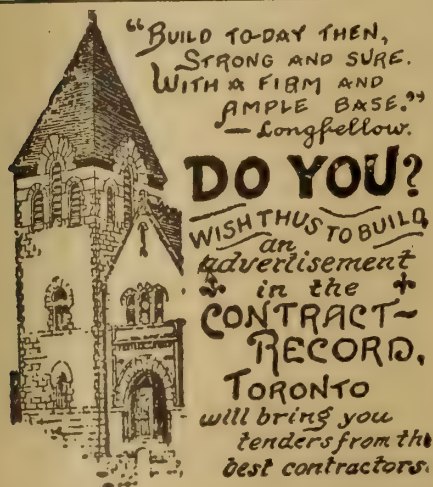 “BUILD TO-DAY THEN,
STRONG AND SURE.
WITH A FIRM AND
AMPLE BASE.”
— Longfellow.
DO YOU?
WISH THUS TO BUILD
an
advertisement
in the
CONTRACT~
RECORD,
TORONTO
will bring you
tenders from the
best contractors.